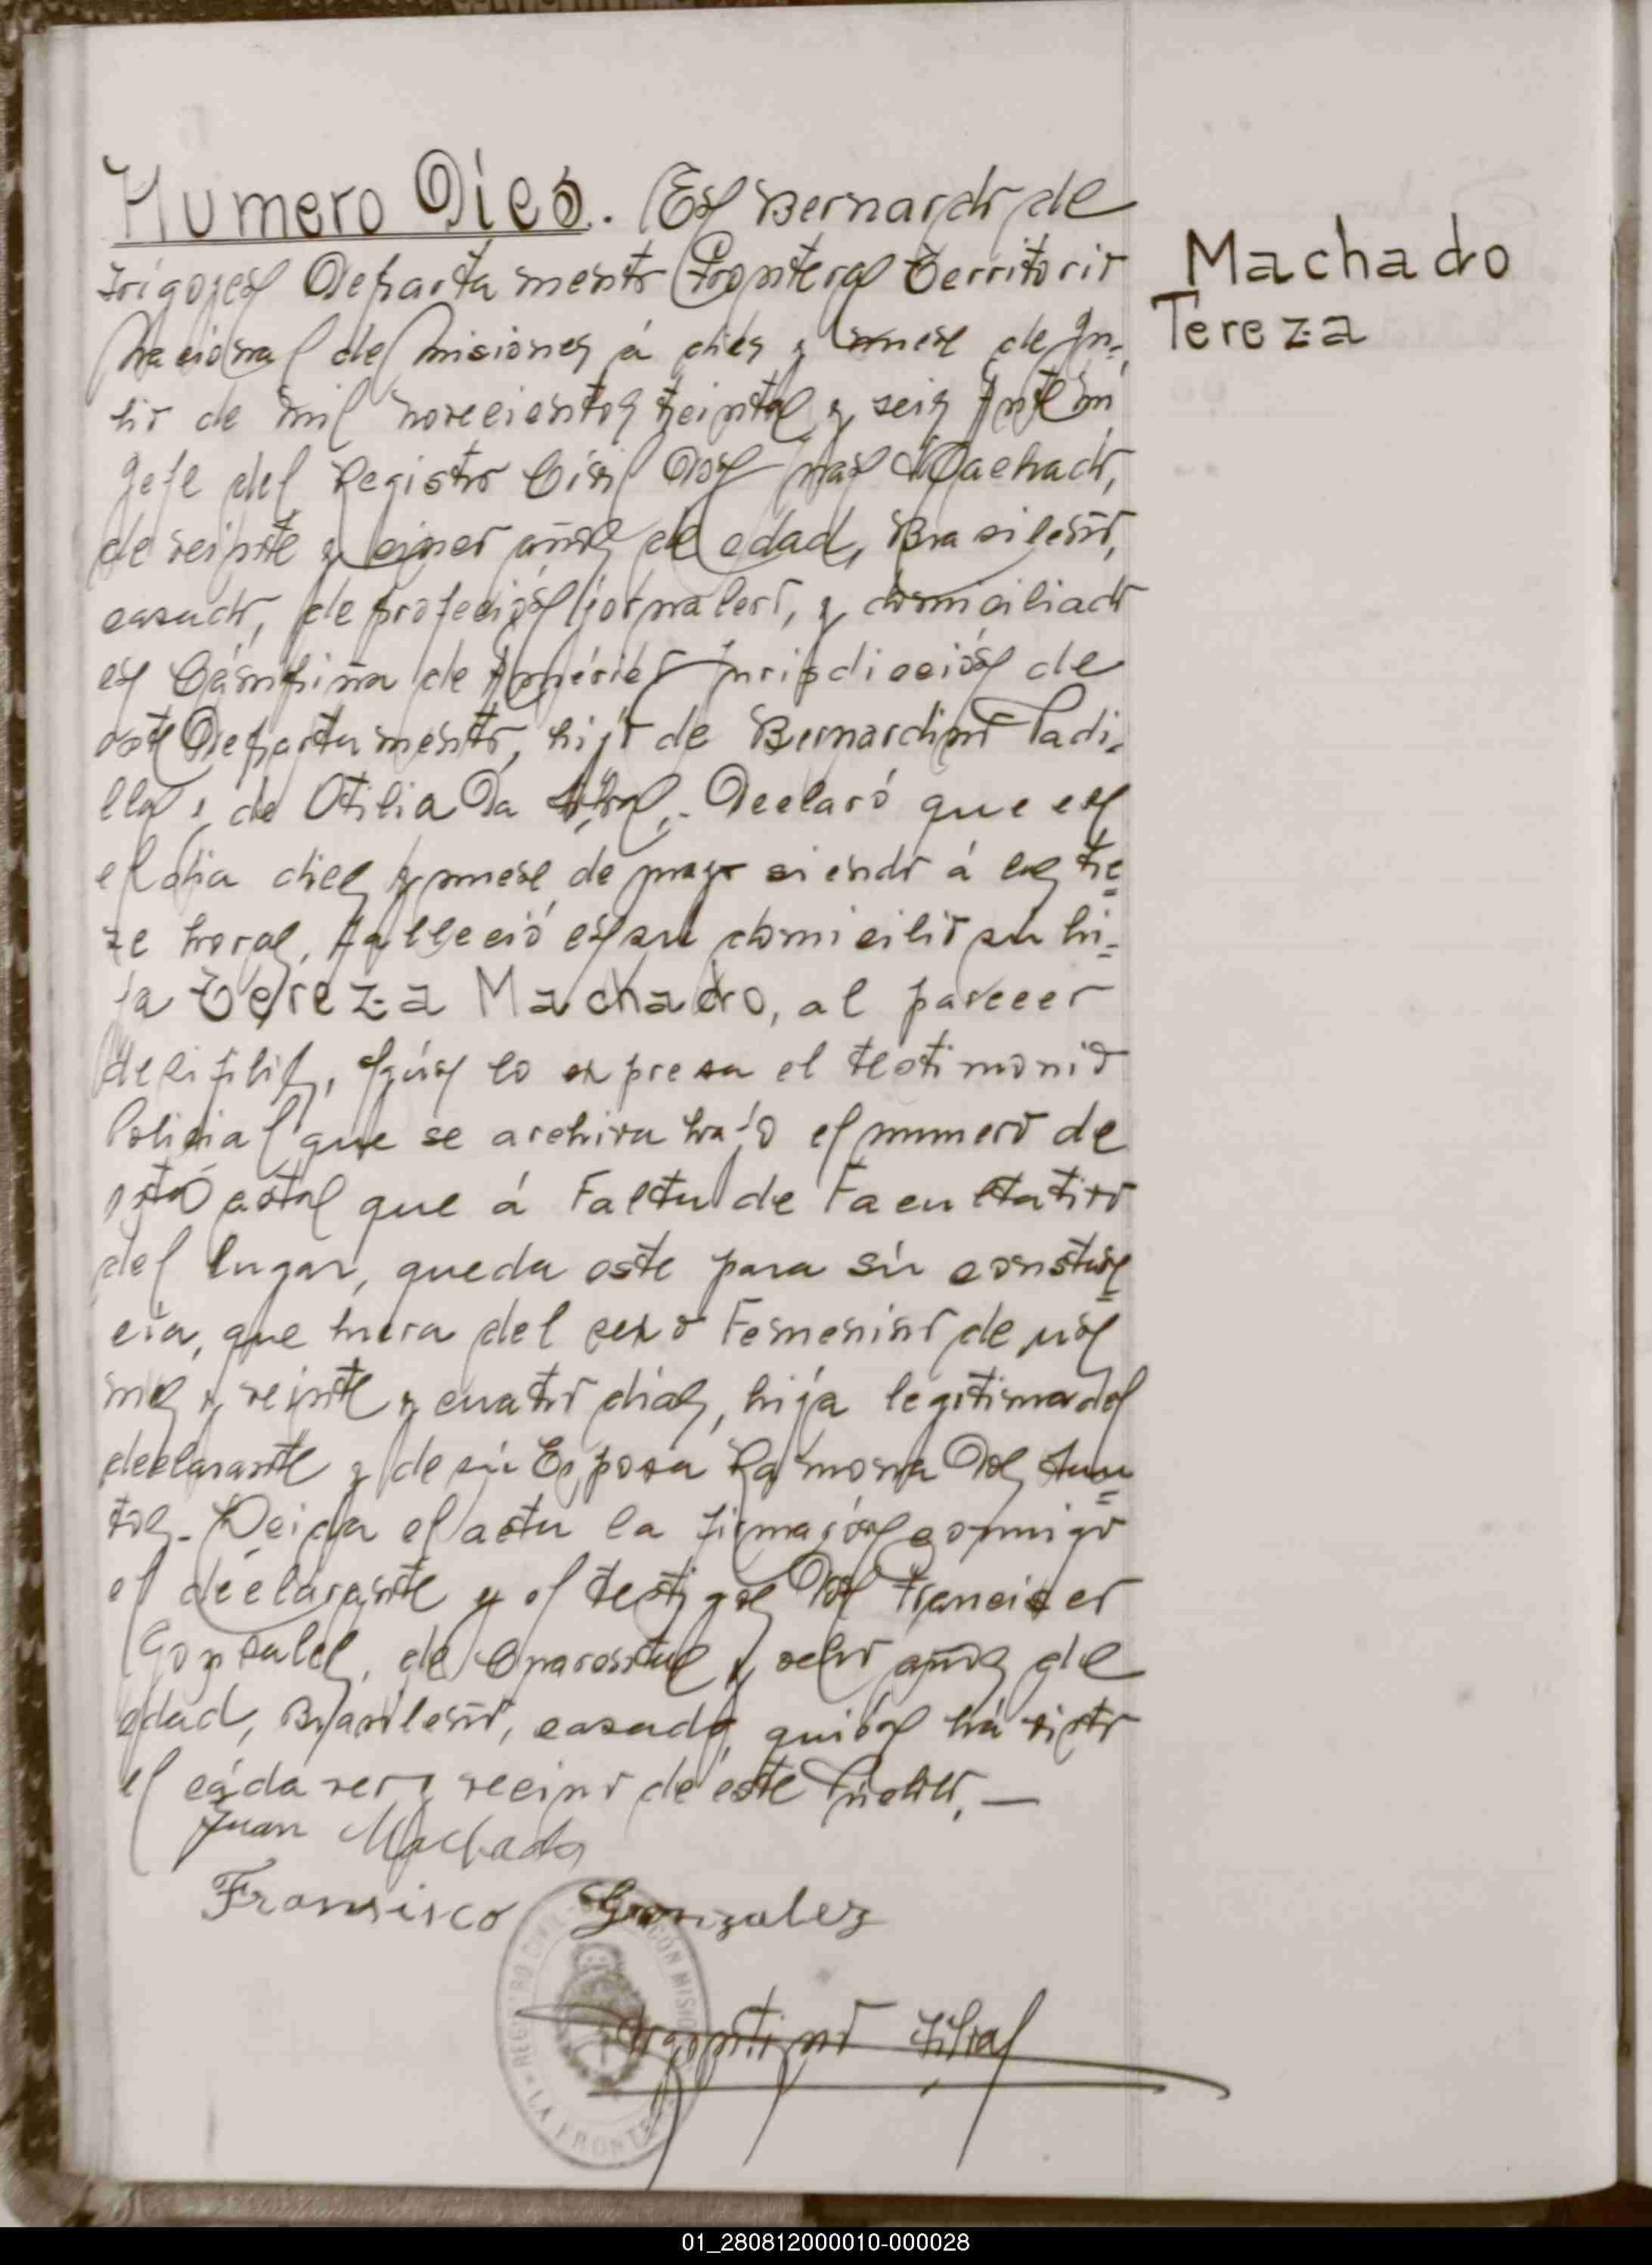 Numero Dies. En Bernardo de
Irigoyen Departamento Frontera Territorio
Nacional de Misiones á dies y nueve de Ju-
lio de mil novecientos treinta y seis Ante mi
Jefe del Registro Civil Don Machado,
de veinte y cinco años de edad, Brasileño,
casado, de profeción jornalero, y domiciliado
en Cámpiña de Américo Jurisdicción de
este Departamento, hijo de Bernardino Padi-
lla y de Otilia Da Silva,- Declaró que en
el dia dies y nueve de mayo siendo á las tre=
ze horas, Fallecio en su domicilio su hi=
ja Tereza Machado, al parecer
de sifilis, según lo expresa el testimonio
Policial que se archiva bajo el numero de
esta acta que á Falta de Facultativo
del lugar, queda este para sú constan=
cia, que hera del sexo Femenino de un
mes y veinte y cuatro días, hija legitima del
declarante y de sú Esposa Ramona Dos San=
tos.- Leida el acta la firmarón conmigo
el declarante y el testigos Don Francisco
Gonsales, de Cuarenta y ocho años de
edad, Brasileño, casado, quién há visto
el cádaver y vecino de este Pueblo,. —
Juan Machado
Fransisco Gonzalez
Argentino Silva
REGISTRO CIVIL
MISIONES
LA FRONTERA
Machado
Tereza
01_280812000010-000028